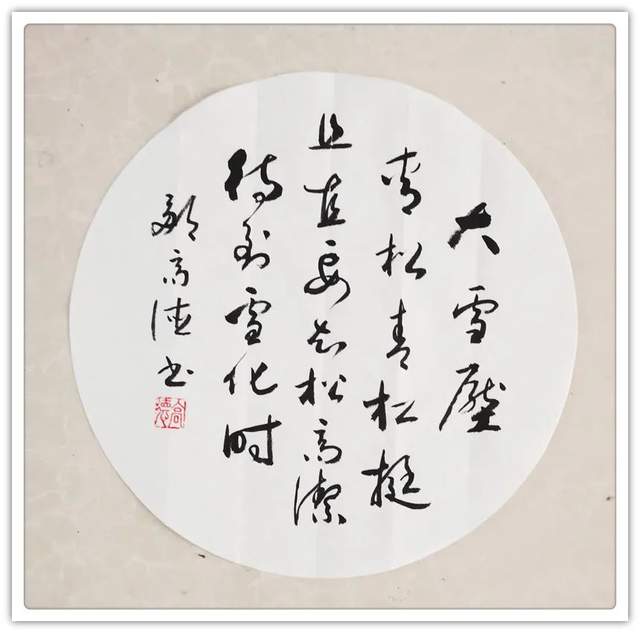 大雪壓
青松青松挺
且直要知松高潔
待到雪化时
高德书